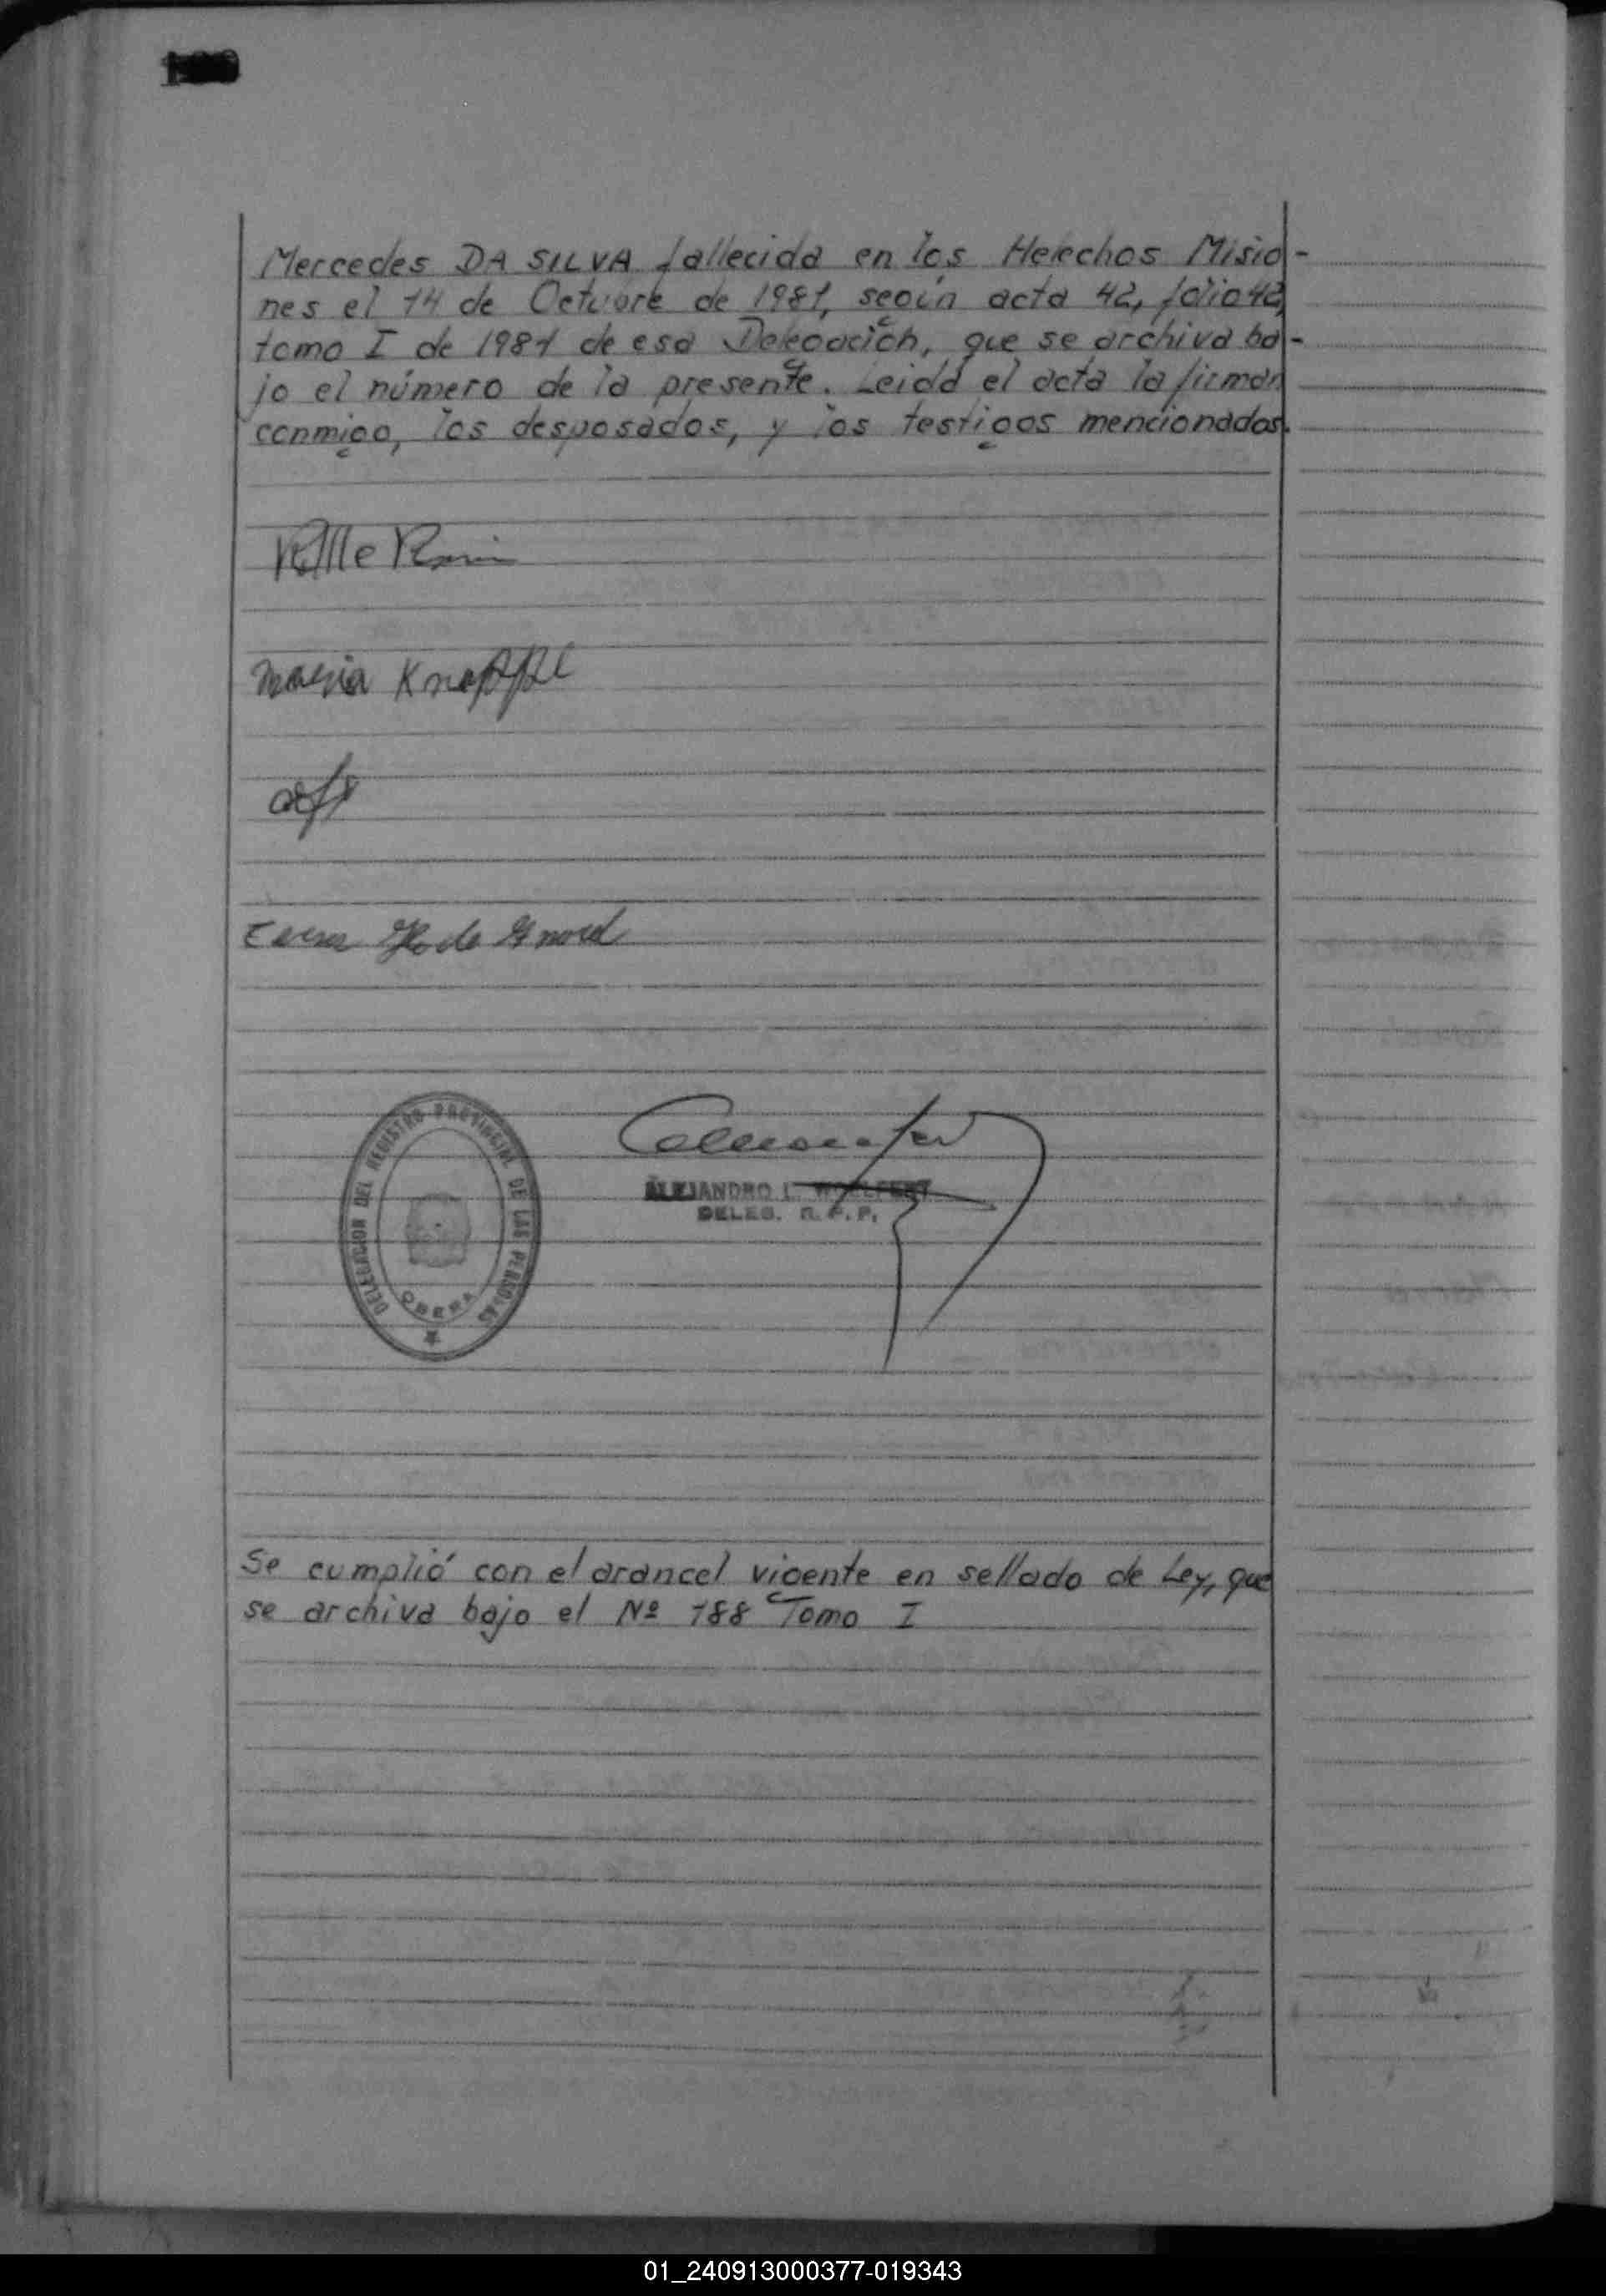 Mercedes DA SILVA fallecida en los Helechos Misio-
nes el 14 de Octubre de 1981, según acta 42, folio 42,
tomo I de 1981 de esa Delegación, que se archiva ba-
jo el número de la presente. Leida el acta la firman
conmigo, los desposados, y los testigos mencionados.
Maria Knappe
DELEGACION DEL REGISTRO PROVINCIAL DE LAS PERSONAS
OBERA
ALEJANDRO L. WOELFERT
DELEG. R. P. P.
Se cumplió con el arancel vigente en sellado de Ley, que
se archiva bajo el Nº 188 Tomo I
01_240913000377-019343